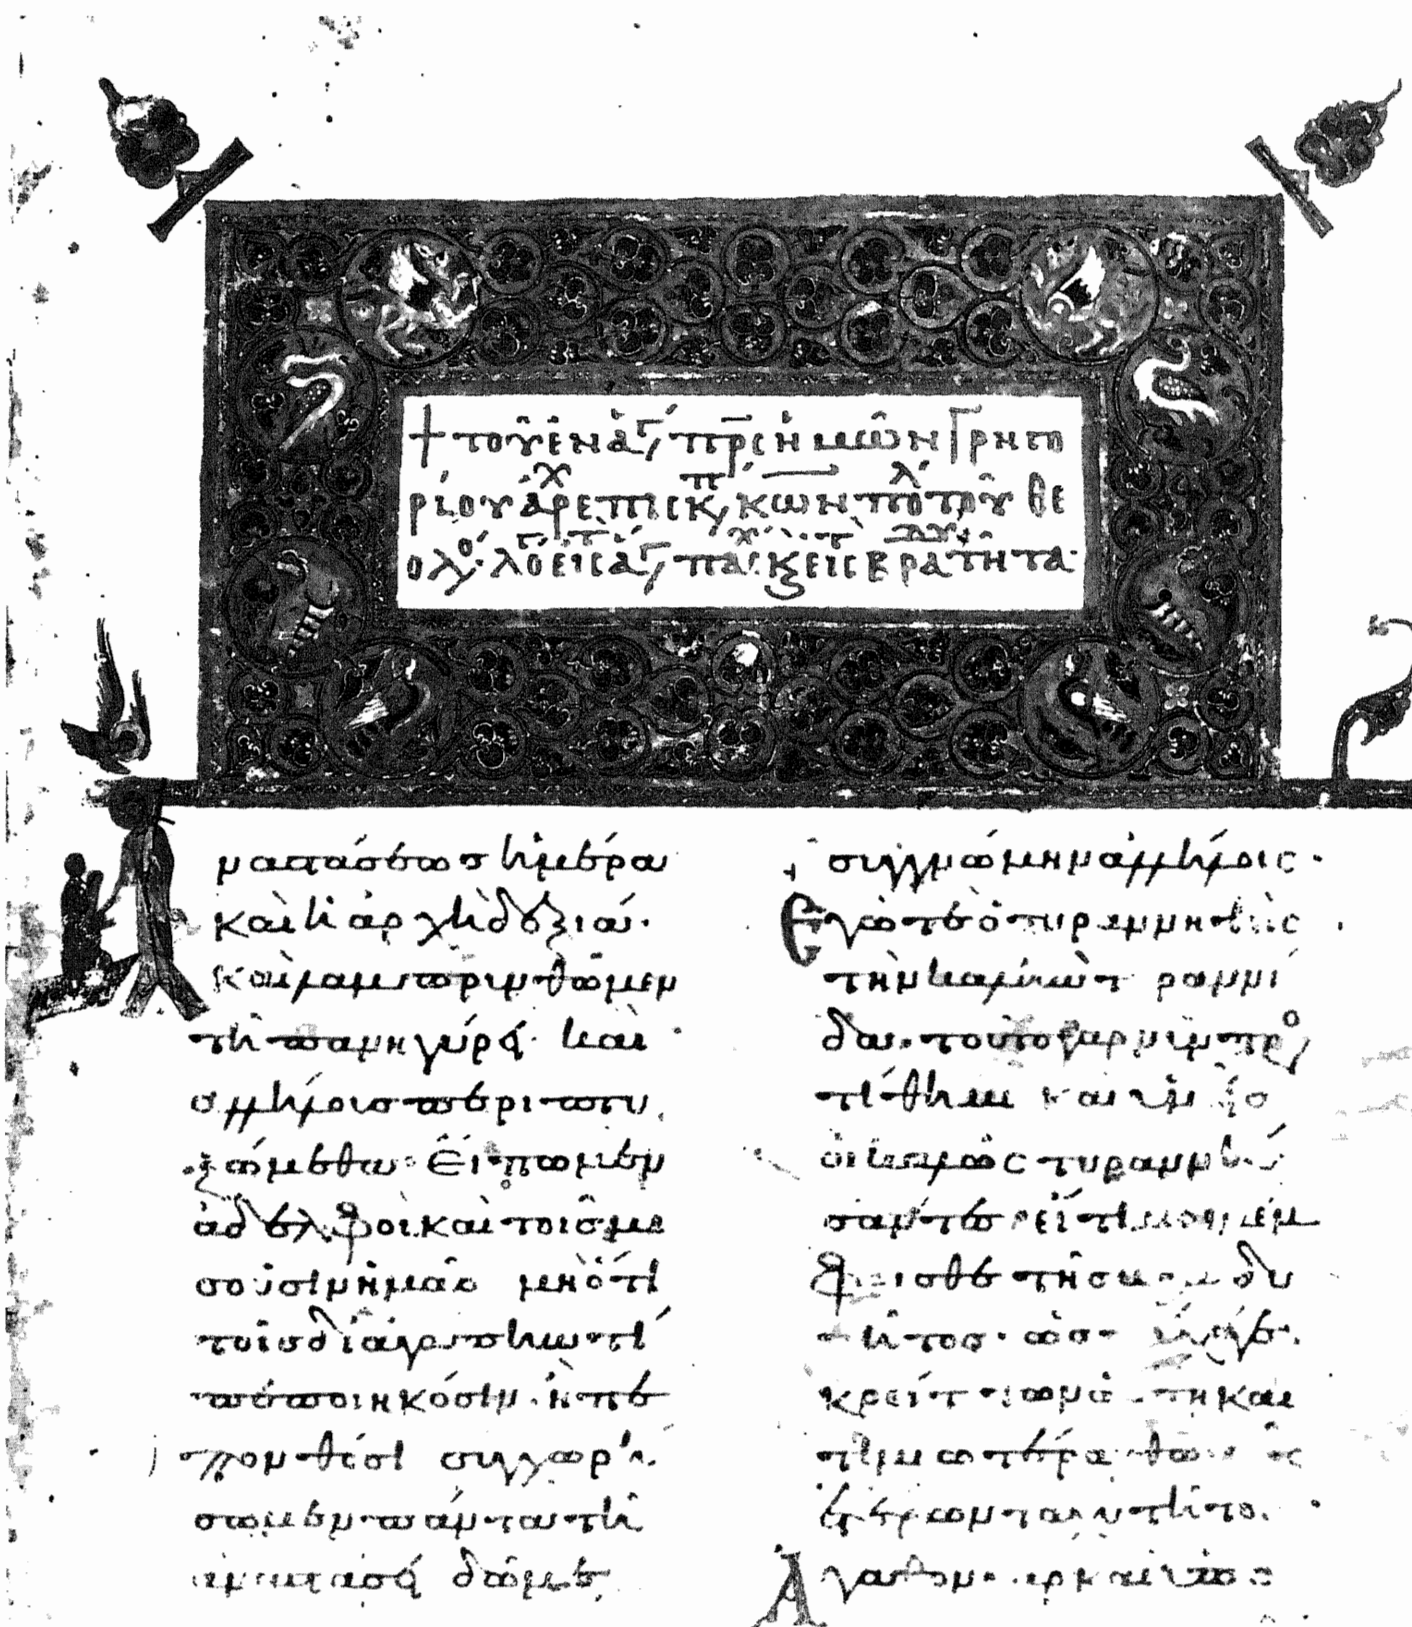 + τοῦ ἐν ἁγ πρς ἡμῶν Γρηγο
ρίου ἀρχεπισκπ κωνπόλ τοῦ θε
ολο λόγ εἰς τὸ ἁγ πάχ κ εἰς τ βραδυτῆτα·
ναστάσεως ἡμέρα
καὶ ἡ ἀρχὴ δεξιά·
καὶ λαμπρυνθῶμεν
τῇ πανηγύρει· καὶ
ἀλλήλοις περιπτυ
ξώμεθα· Εἴπωμεν
ἀδελφοὶ καὶ τοῖς μι
σοῦσιν ἡμᾶς μὴ ὅτι
τοῖς δι ἀγάπην τι
πεποιηκόσιν· ἢ πε
πονθόσι συγχωρή
σωμεν πάντα τῇ
ἀναστάσει δῶμεν
συγγνώμην ἀλλήλοις·
Ἐγώ τε ὁ τυραννηθεὶς
τὴν καλὴν τυραννί
δα· τοῦτο γὰρ νῦν προσ
τίθημι καὶ ὑμεῖς
οἱ καλῶς τυραννή
σαντες εἴ τι μοι μέμ
φοισθε τῆς βραδυ
τῆτος· ὡς
κρείττων αὕτη καὶ
τιμιωτέρα θῶ τῆς
ἑτέρων ταχυτῆτος
Ἀγαθὸν γὰρ καὶ